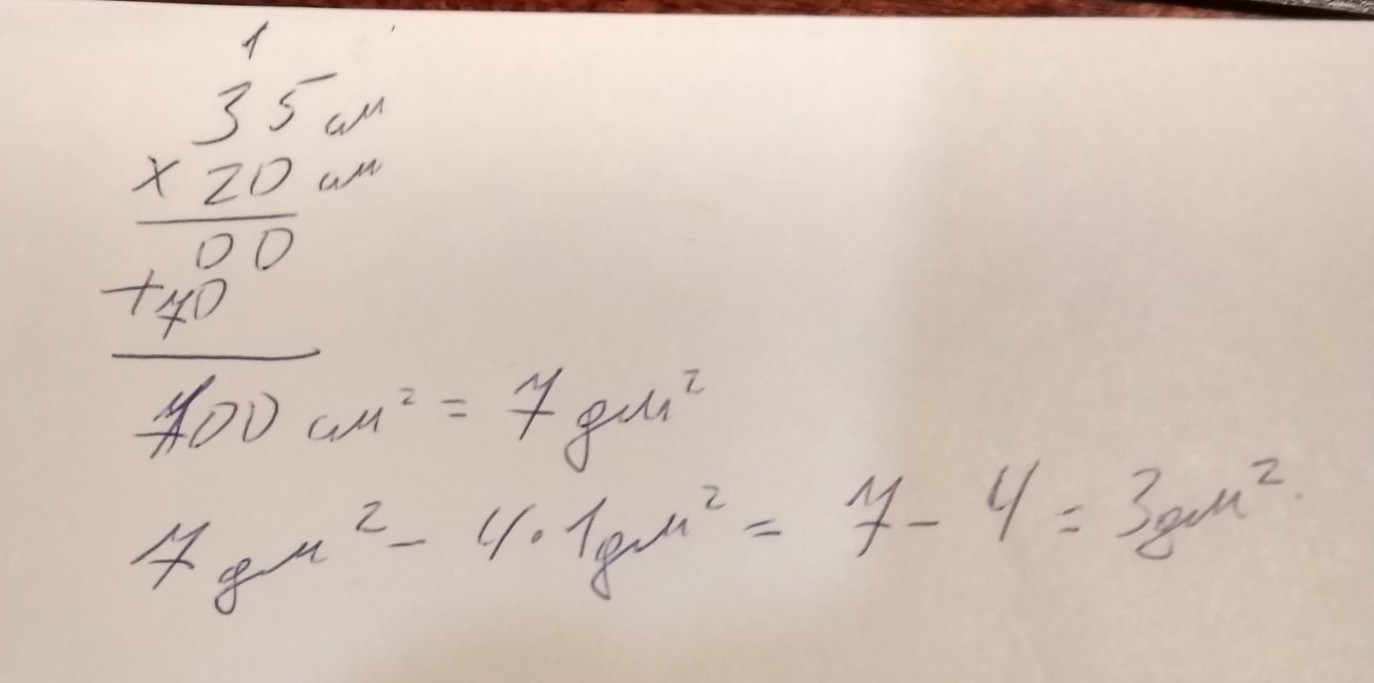 1
35 см
× 20 см
00
+70
700 см² = 7 дм²
7 дм² - 4 · 1 дм² = 7 - 4 = 3 дм².